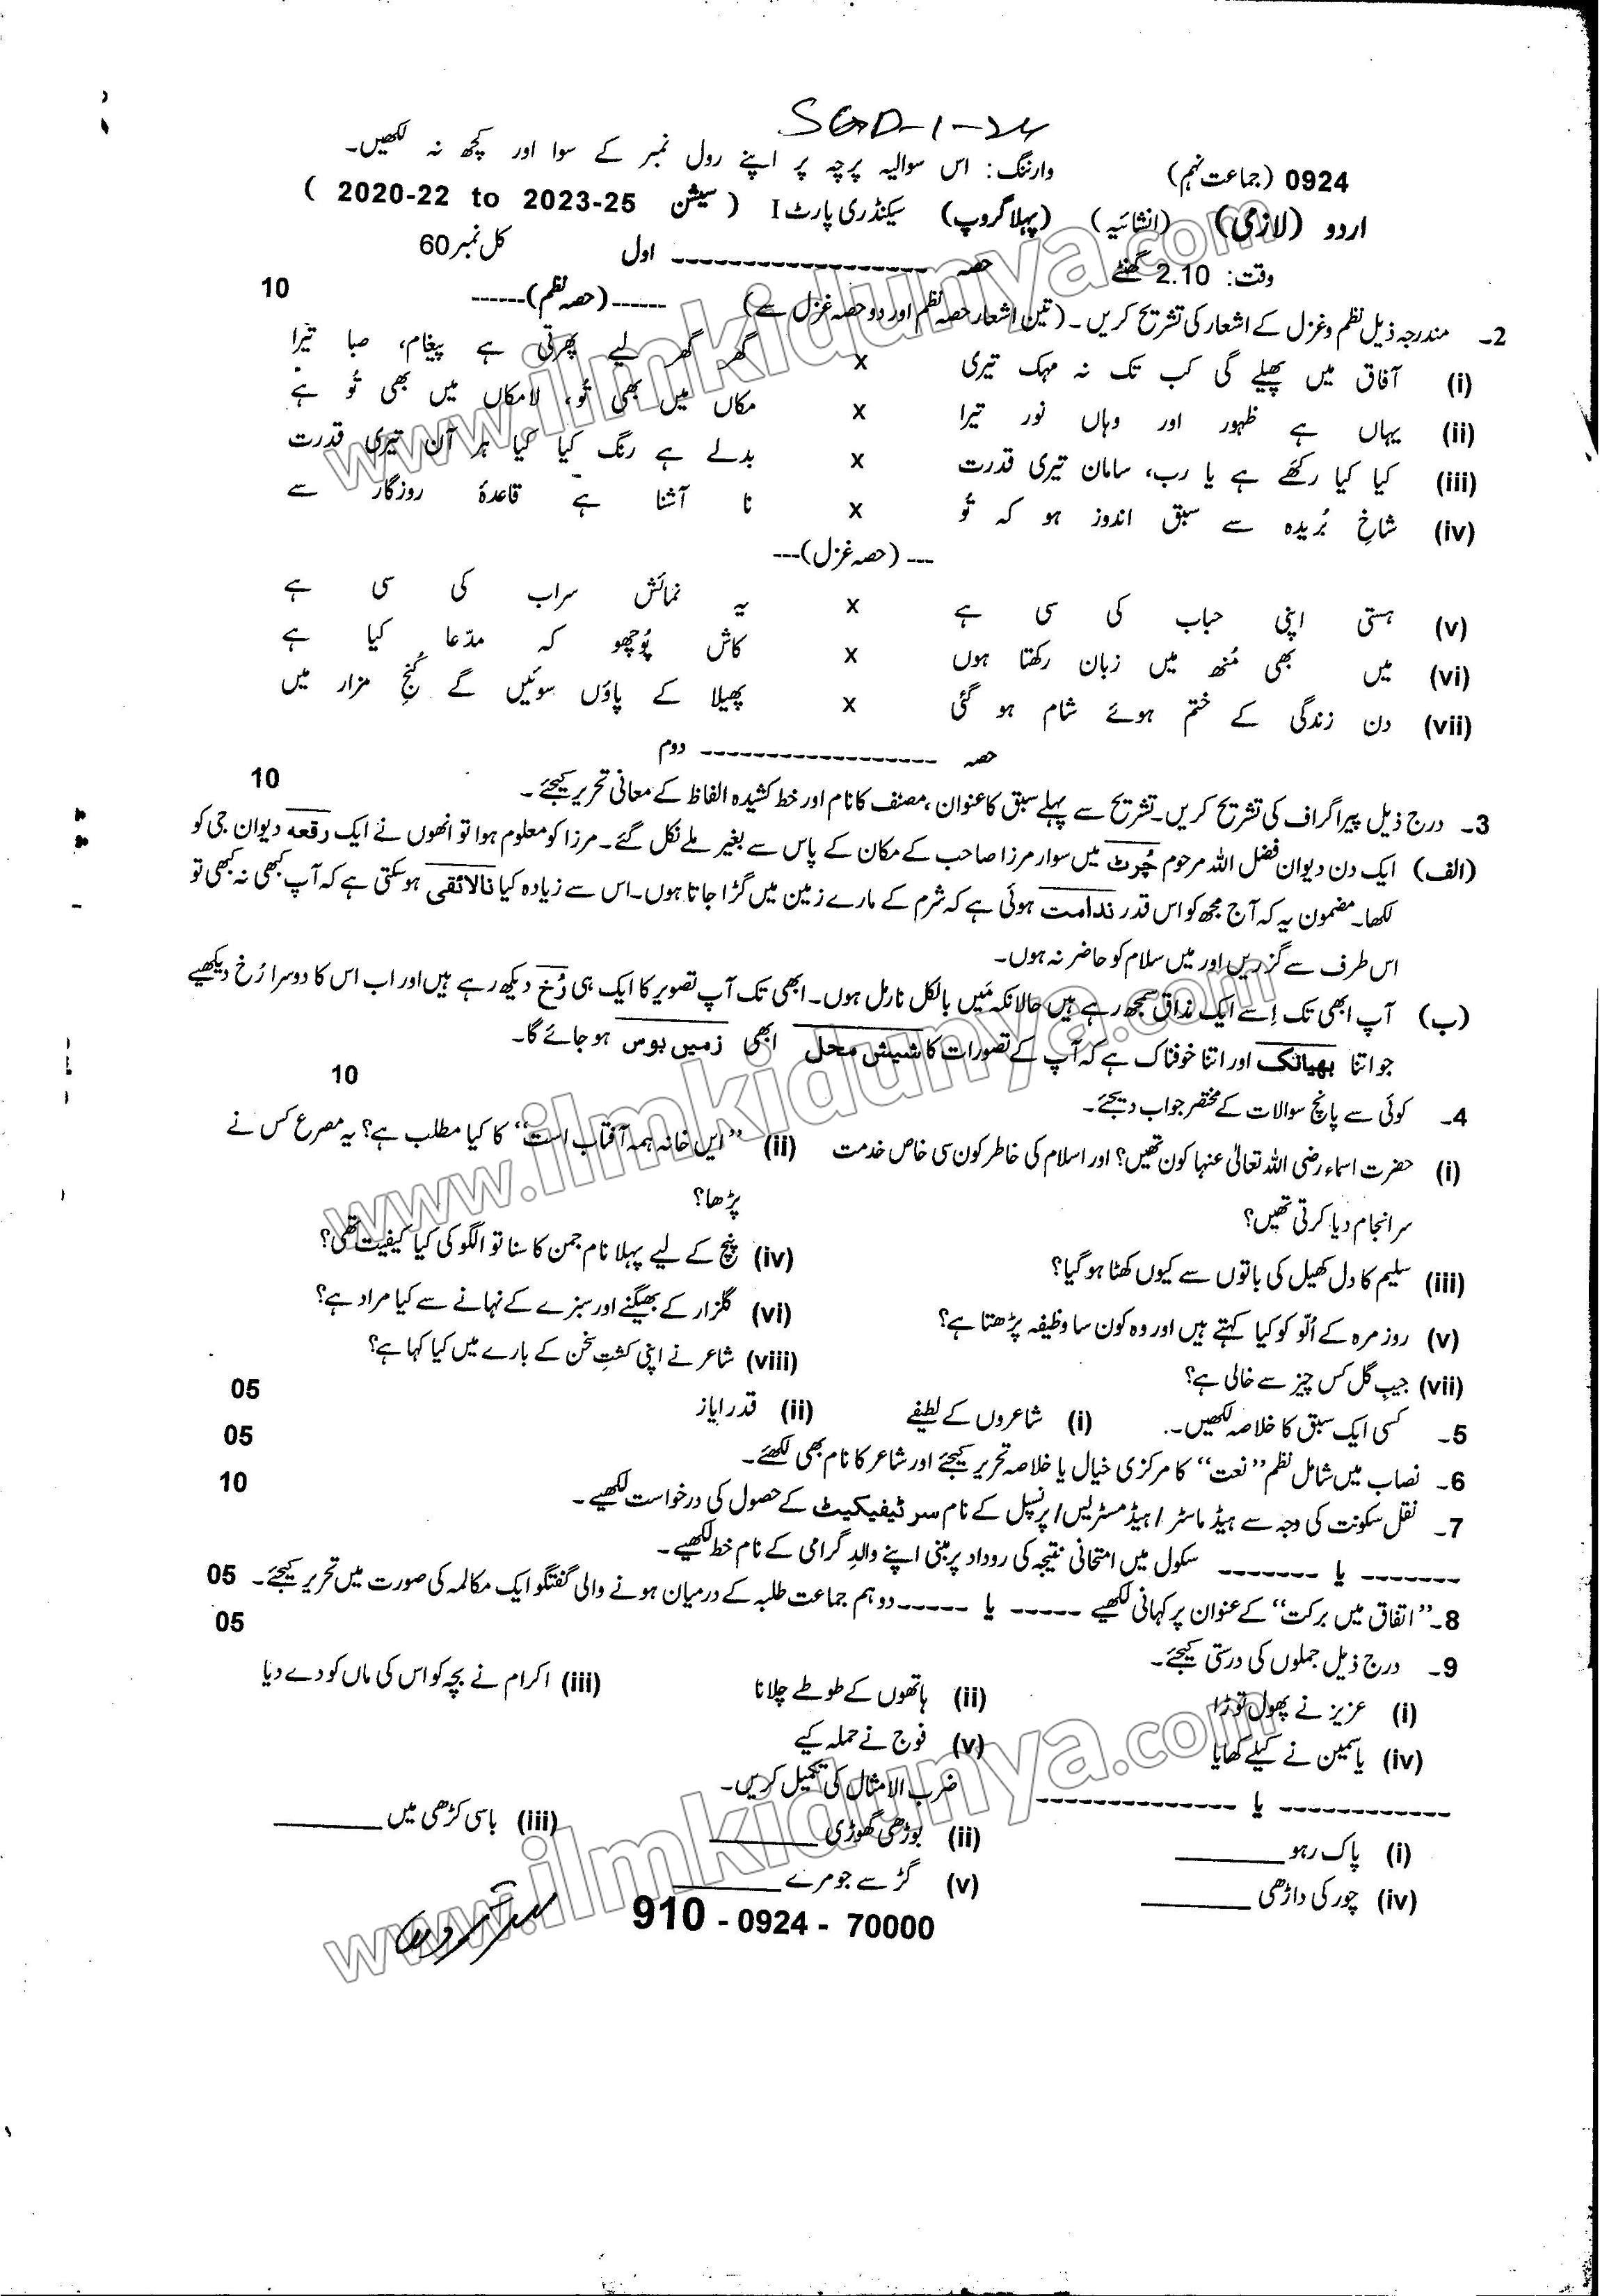 SGD-1-24
0924 (جماعت نہم) وارننگ: اس سوالیہ پرچہ پر اپنے رول نمبر کے سوا اور کچھ نہ لکھیں۔
اردو (لازمی) (انشائیہ) (پہلا گروپ) سیکنڈری پارٹ I (سیشن 2020-22 to 2023-25)
وقت: 2.10 گھنٹے حصہ ------------------ اول کل نمبر 60
2۔ مندرجہ ذیل نظم و غزل کے اشعار کی تشریح کریں۔ (تین اشعار حصہ نظم اور دو حصہ غزل سے) ------(حصہ نظم)------ 10
(i) آفاق میں پھیلے گی کب تک نہ مہک تیری x گھر گھر لیے پھرتی ہے پیغام، صبا تیرا
(ii) یہاں ہے ظہور اور وہاں نور تیرا x مکاں میں بھی تُو، لامکاں میں بھی تُو ہے
(iii) کیا کیا رکھے ہے یا رب، سامان تیری قدرت x بدلے ہے رنگ کیا کیا ہر آن تیری قدرت
(iv) شاخِ بُریدہ سے سبق اندوز ہو کہ تُو x نا آشنا ہے قاعدۂ روزگار سے
---(حصہ غزل)---
(v) ہستی اپنی حباب کی سی ہے x یہ نمائش سراب کی سی ہے
(vi) میں بھی مُنھ میں زبان رکھتا ہوں x کاش پُوچھو کہ مدّعا کیا ہے
(vii) دن زندگی کے ختم ہوئے شام ہو گئی x پھیلا کے پاؤں سوئیں گے کُنجِ مزار میں
حصہ ------------------ دوم
3۔ درج ذیل پیراگراف کی تشریح کریں۔ تشریح سے پہلے سبق کا عنوان، مصنف کا نام اور خط کشیدہ الفاظ کے معانی تحریر کیجئے۔ 10
(الف) ایک دن دیوان فضل اللہ مرحوم چُرٹ میں سوار مرزا صاحب کے مکان کے پاس سے بغیر ملے نکل گئے۔ مرزا کو معلوم ہوا تو انھوں نے ایک رقعہ دیوان جی کو
لکھا۔ مضمون یہ کہ آج مجھ کو اس قدر ندامت ہوئی ہے کہ شرم کے مارے زمین میں گڑا جاتا ہوں۔ اس سے زیادہ کیا نالائقی ہو سکتی ہے کہ آپ کبھی نہ کبھی تو
اس طرف سے گزریں اور میں سلام کو حاضر نہ ہوں۔
(ب) آپ ابھی تک اِسے ایک مذاق سمجھ رہے ہیں حالانکہ مَیں بالکل نارمل ہوں۔ ابھی تک آپ تصویر کا ایک ہی رُخ دیکھ رہے ہیں اور اب اس کا دوسرا رُخ دیکھیے
جو اتنا بھیانک اور اتنا خوفناک ہے کہ آپ کے تصورات کا شیش محل ابھی زمیں بوس ہو جائے گا۔
4۔ کوئی سے پانچ سوالات کے مختصر جواب دیجئے۔ 10
(i) حضرت اسماء رضی اللہ تعالیٰ عنہا کون تھیں؟ اور اسلام کی خاطر کون سی خاص خدمت (ii) ”ایں خانہ ہمہ آفتاب است“ کا کیا مطلب ہے؟ یہ مصرع کس نے
سر انجام دیا کرتی تھیں؟ پڑھا؟
(iii) سلیم کا دل کھیل کی باتوں سے کیوں کھٹا ہو گیا؟ (iv) پنچ کے لیے پہلا نام جمن کا سنا تو الگو کی کیا کیفیت تھی؟
(v) روز مرہ کے اُلّو کو کیا کہتے ہیں اور وہ کون سا وظیفہ پڑھتا ہے؟ (vi) گلزار کے بھیگنے اور سبزے کے نہانے سے کیا مراد ہے؟
(vii) جیبِ گل کس چیز سے خالی ہے؟ (viii) شاعر نے اپنی کشتِ سخن کے بارے میں کیا کہا ہے؟
5۔ کسی ایک سبق کا خلاصہ لکھیں۔ (i) شاعروں کے لطیفے (ii) قدر ایاز 05
6۔ نصاب میں شامل نظم ”نعت“ کا مرکزی خیال یا خلاصہ تحریر کیجئے اور شاعر کا نام بھی لکھئے۔ 05
7۔ نقل سکونت کی وجہ سے ہیڈ ماسٹر / ہیڈ مسٹریس / پرنسپل کے نام سرٹیفیکیٹ کے حصول کی درخواست لکھیے۔ 10
------- یا ------- سکول میں امتحانی نتیجہ کی روداد پر مبنی اپنے والدِ گرامی کے نام خط لکھیے۔
8۔ ”اتفاق میں برکت“ کے عنوان پر کہانی لکھیے ----- یا ----- دو ہم جماعت طلبہ کے درمیان ہونے والی گفتگو ایک مکالمہ کی صورت میں تحریر کیجئے۔ 05
9۔ درج ذیل جملوں کی درستی کیجئے۔ 05
(i) عزیز نے پھول توڑا (ii) ہاتھوں کے طوطے چلانا (iii) اکرام نے بچہ کو اس کی ماں کو دے دیا
(iv) یاسمین نے کیلے کھایا (v) فوج نے حملہ کیے
------------ یا -------------- ضرب الامثال کی تکمیل کریں۔
(i) پاک رہو ________ (ii) بوڑھی گھوڑی ________ (iii) باسی کڑھی میں ________
(iv) چور کی داڑھی ________ (v) گڑ سے جو مرے ________
910 - 0924 - 70000
www.ilmkidunya.com
www.ilmkidunya.com
www.ilmkidunya.com